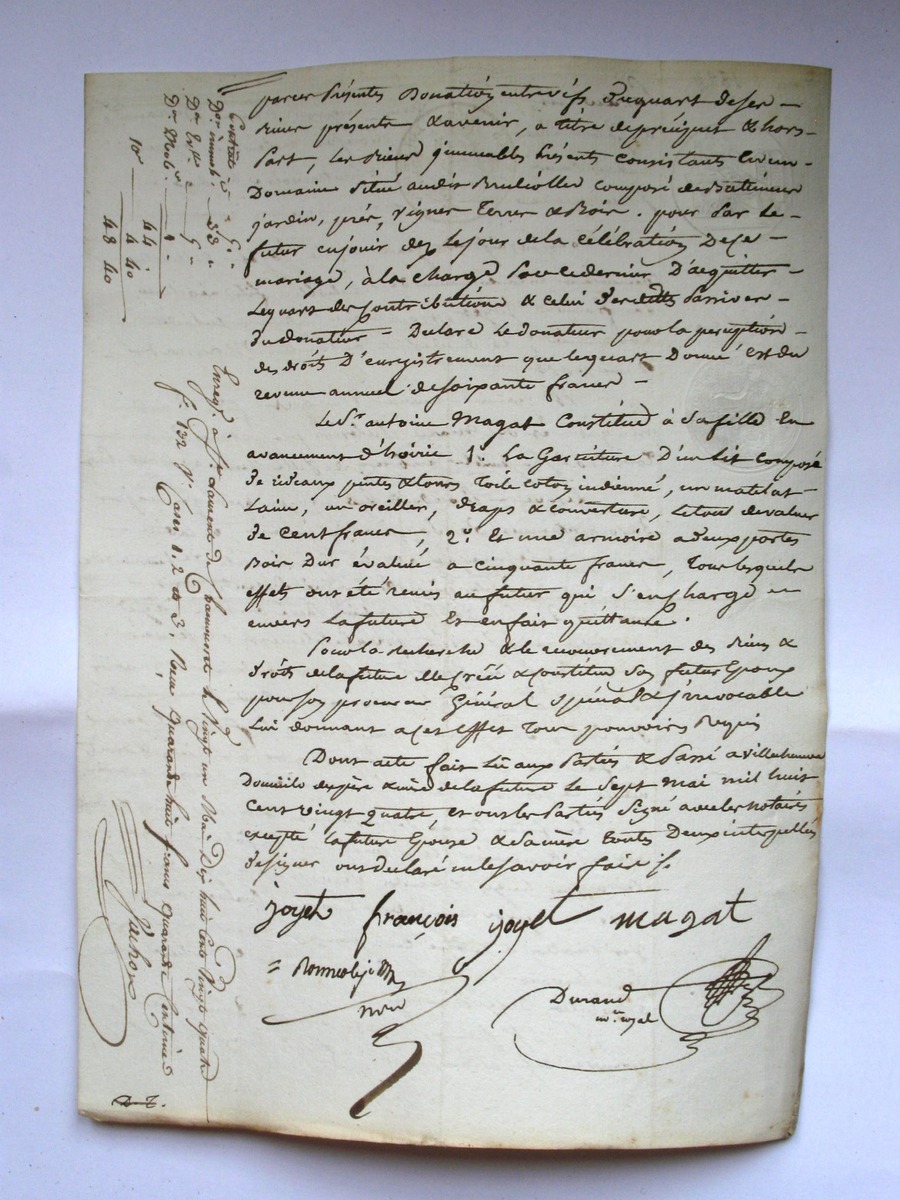 par ces présentes Donation entre vifs Du quart de ses –
Biens présents & avenir, a titre de préciput & hors –
part, les Biens immeubles présents consistants En un –
Domaine Situé audit Brulliolles composé de Batiments
jardin, prés, vignes Terres & Bois. pour par le –
futur en jouir dez le jour de la Célébration De ce –
mariage, à la charge par ce dernier D'acquitter –
le quart des Contributions & celui des dettes passives –
du donateur = Declare le donateur pour la perception –
des droits D'enregistrement que le quart Donné est du
revenu annuel de soixante francs –
Le Sr. antoine Magat Constitue à sa fille En
avancement d'hoirie 1º. La Garniture D'un Lit composé
de rideaux pentes & tours Toile coton indienne, un matelat –
Laine, un oreiller, draps & couverture, le tout de valeur
de Cent francs, 2º. Et une armoire a deux portes
Bois Dur évaluée a cinquante francs, Tous lesquels
effets ont été remis au futur qui S'en charge –
envers La future Et en fait quittance.
Pour la recherche & le recouvrement des Biens &
Droits de la future elle créé & constitue Son futur Epoux
pour son procureur Général spécial & irrévocable
Lui donnant a cet effet Tous pouvoirs Requis
Dont acte fait Lu aux Parties & Passé a
Domicile des père & mère de la future le Sept Mai mil huit
Cent vingt quatre, et ont les Parties Signé avec les notaires
excepté La future Epouse & sa mère Toutes Deux interpellées
de signer ont déclaré ne le savoir faire /.
joyet françois joyet magat
nore
Durand
nre. royal
Contrat 5 "
Don immob. 33 "
44
4 40
10
48 40
Enregé. à St. Laurent de Chamousset le vingt un Mai Dix huit Cent vingt quatre
f. 132 Vo. Cases 1. 2 et 3. Reçu quarante huit francs quarante Centimes
Pachon
D. T.